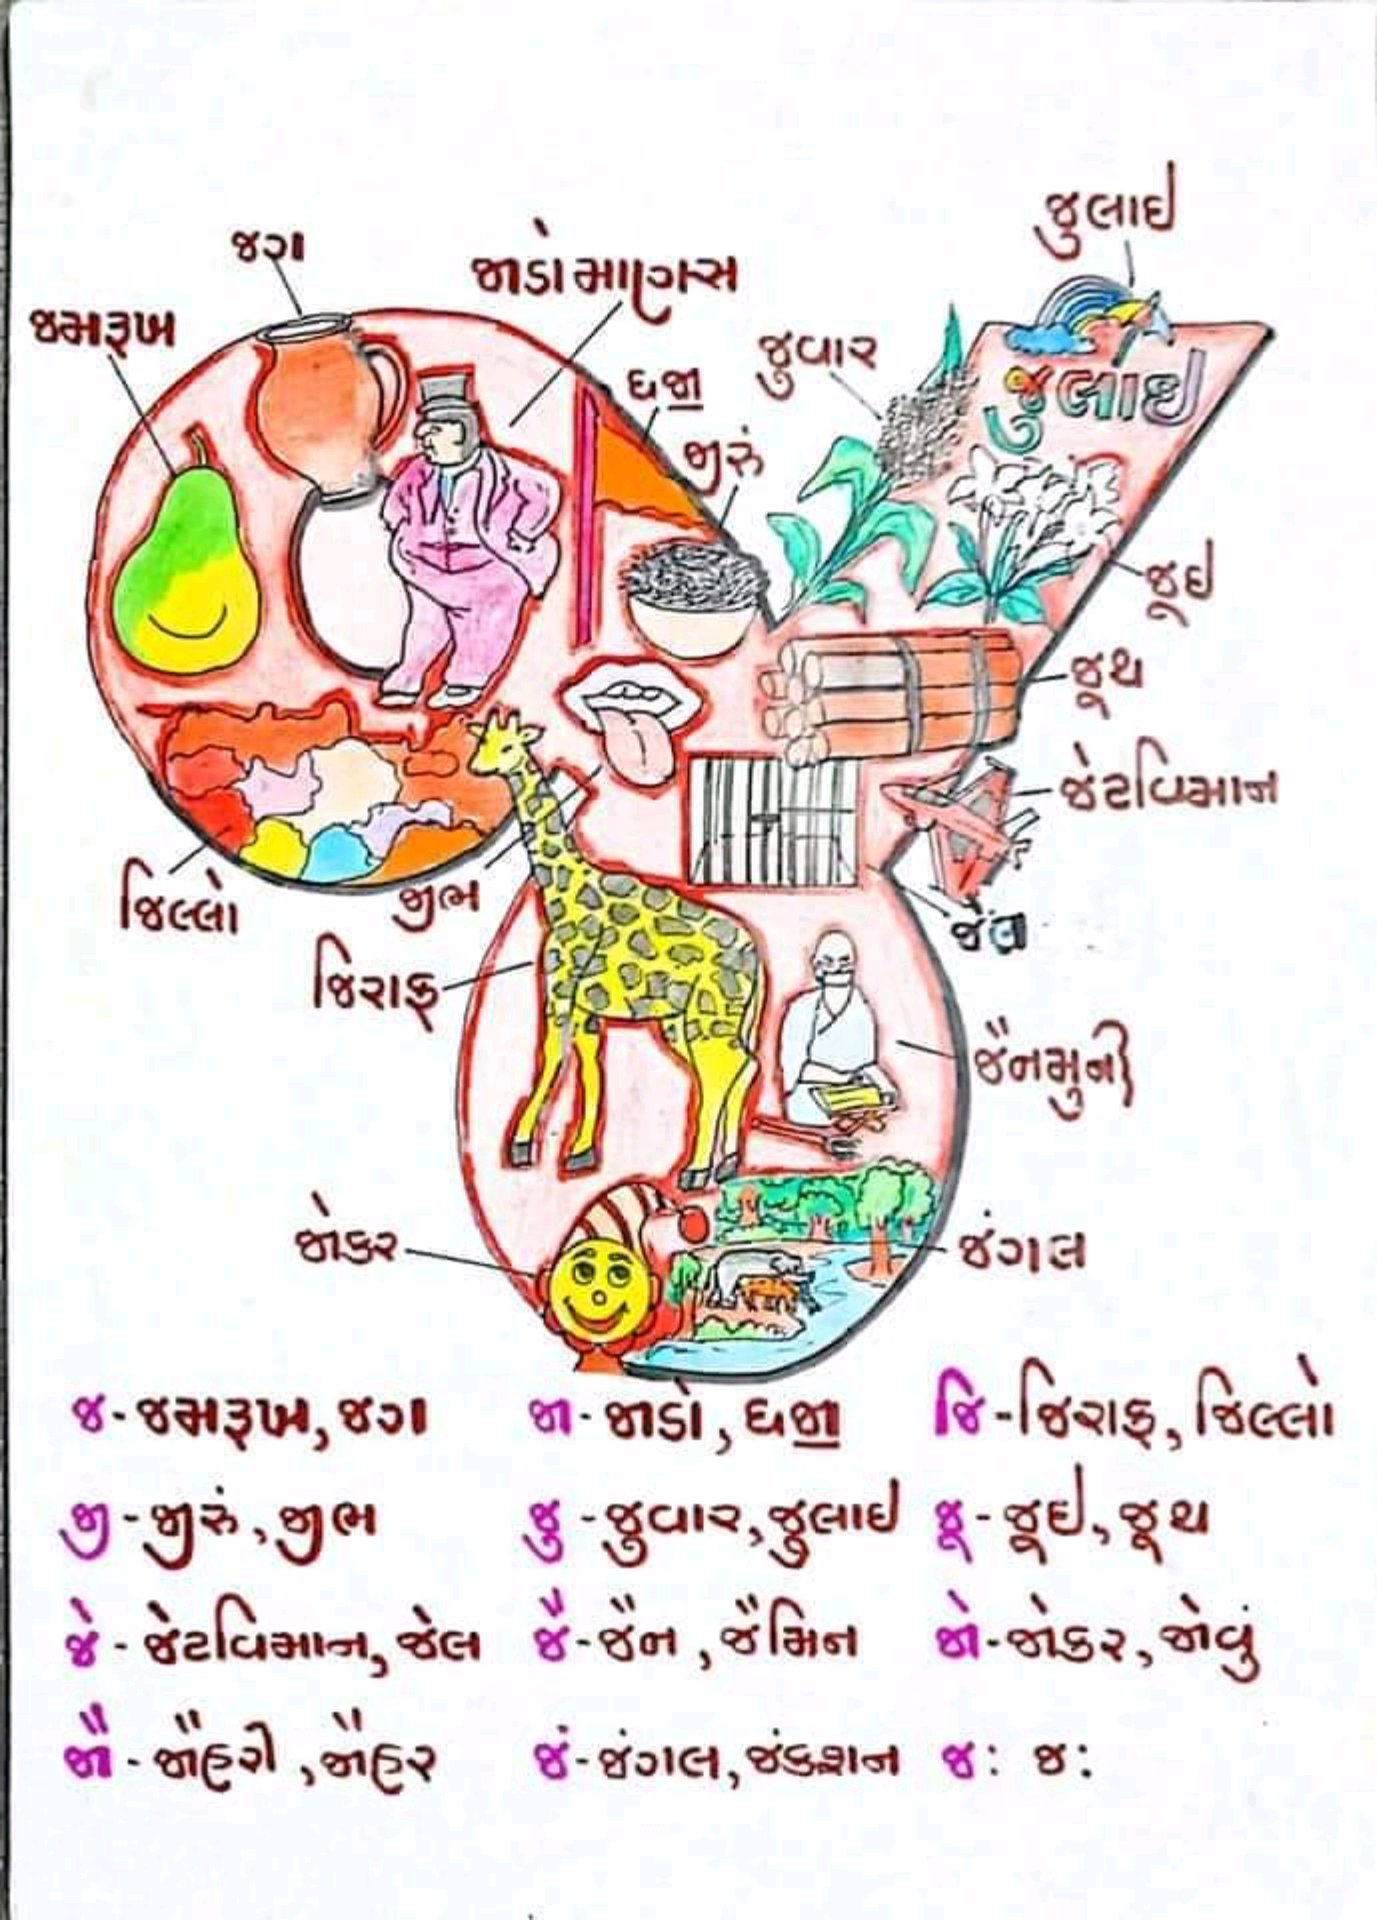 જુલાઈ
જગ
જાડો માણસ
જમરૂખ
જુવાર
ધજા
જીરું
જુલાઈ
જૂઈ
જૂથ
જેટવિમાન
જિલ્લો
જીભ
જેલ
જિરાફ
જૈનમુની
જોકર
જંગલ
જ - જમરૂખ, જગ જા - જાડો, ધજા જિ - જિરાફ, જિલ્લો
જી - જીરું, જીભ જુ - જુવાર, જુલાઈ જૂ - જૂઈ, જૂથ
જે - જેટવિમાન, જેલ જૈ - જૈન, જૈમિન જો - જોકર, જોવું
જૌ - જૌહરી, જૌહર જં - જંગલ, જંકશન જ: જ: